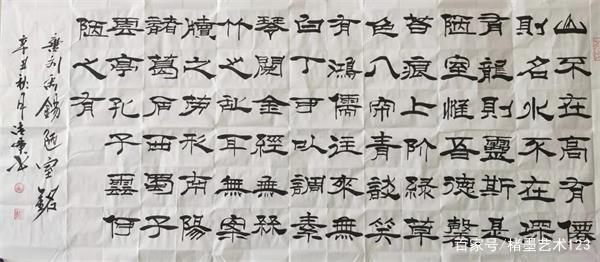 山不在高有僊
則名水不在深
有龍則靈斯是
陋室惟吾德馨
苔痕上階綠草
色入帘青談笑
有鴻儒往來無
白丁可以調素
琴閱金經無絲
竹之乱耳無案
牘之劳形南陽
諸葛庐西蜀子
雲亭孔子雲何
陋之有
刘禹錫陋室銘
辛丑秋月
百家号/楮墨艺术123